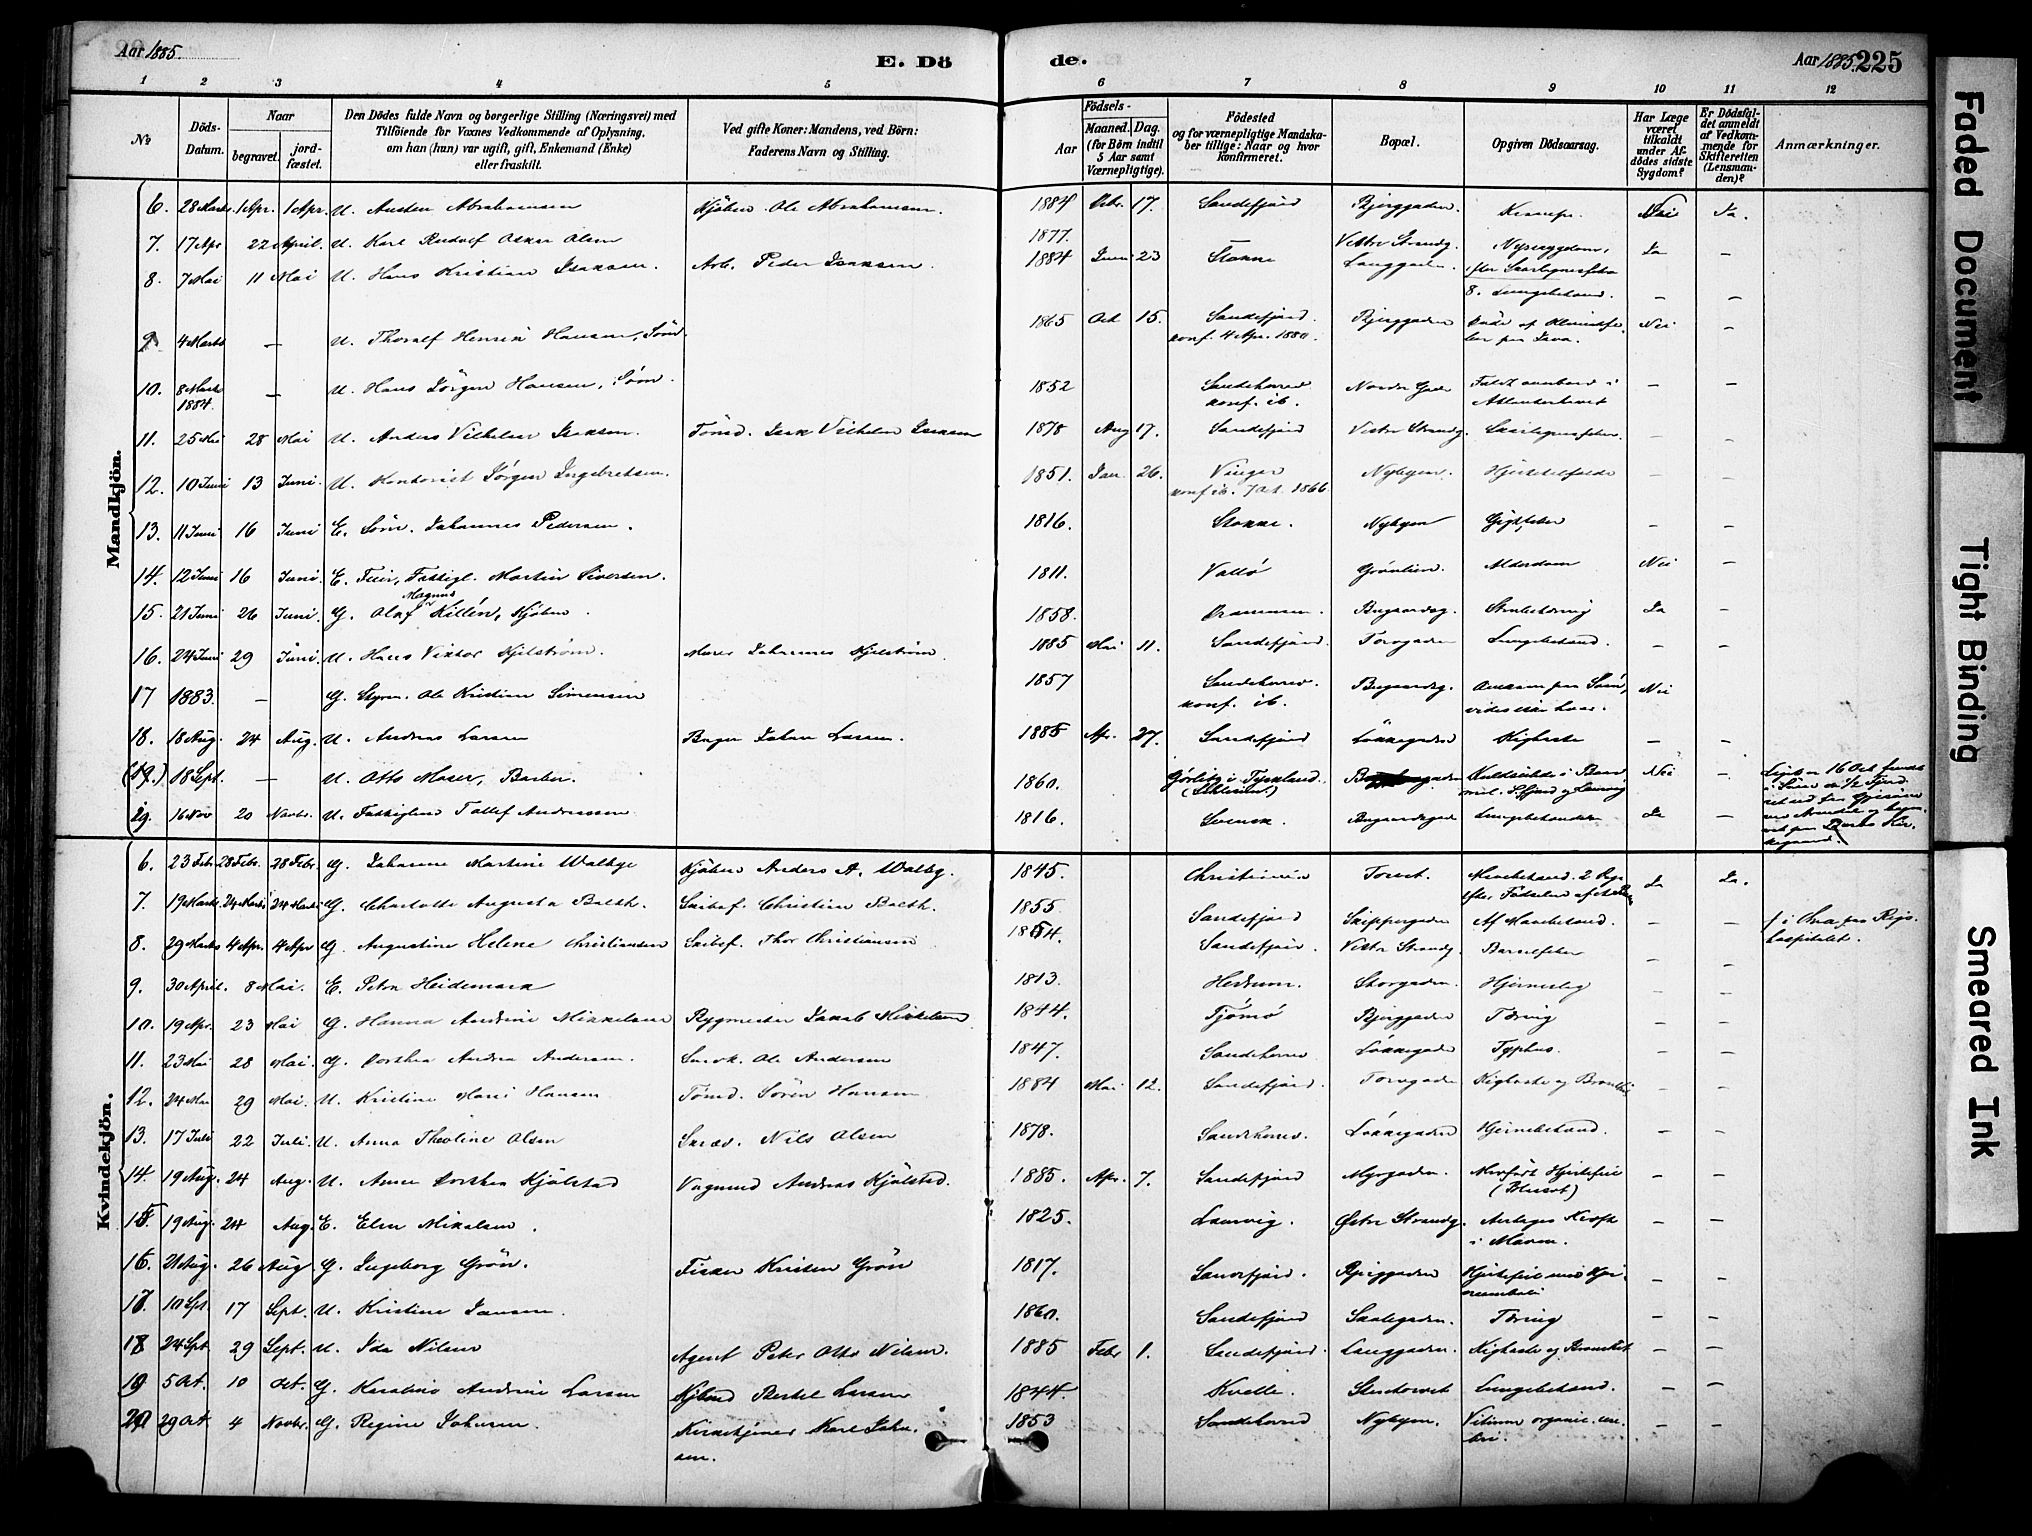 Aar 1885.
E. Dö
de.
Aar 1885
225
1 2 3 4 5 6 7 8 9 10 11 12
№
Döds-
Datum.
Naar
begravet.
jord-
fæstet.
Den Dödes fulde Navn og borgerlige Stilling (Næringsvei) med
Tilföiende for Voxnes Vedkommende af Oplysning,
om han (hun) var ugift, gift, Enkemand (Enke)
eller fraskilt.
Ved gifte Koner: Mandens, ved Börn:
Faderens Navn og Stilling.
Födsels-
Aar
Maaned. Dag.
(for Börn indtil
5 Aar samt
Værnepligtige).
Födested
og for værnepligtige Mandska-
ber tillige: Naar og hvor
konfirmeret.
Bopæl.
Opgiven Dödsaarsag.
Har Læge
været
tilkaldt
under Af-
dödes sidste
Sygdom?
Er Dödsfal-
det anmeldt
af Vedkom-
mende for
Skifteretten
(Lensman-
den)?
Anmærkninger.
Mandkjön.
6. 28 Marts 1 Apr. 1 Apr. U. Austen Abrahamsen Kjöbm. Ole Abrahamsen. 1884 Octr. 17. Sandefjord Bjerggaden. Krampe. Nei Ja.
7. 17 Apr 22 April. U. Karl Rudolf Oskar Olsen 1877. Vestre Strandg. Nyresygdom, Ja –
efter Skarlagensfeber
8. 7 Mai 11 Mai U. Hans Kristian Isaksen. Arb. Peder Isaksen. 1884 Juni 23 Stokke Langgaden.
8. Lungebetænd. – –
9. 4 Marts – U. Thoralf Henrik Hansen, Sömd. 1865 Oct 15. Sandefjord. Bjerggaden Nei –
konf. 4 Apr. 1880. paa Java.
10. 8 Marts – U. Hans Jörgen Hansen, Söm. 1852 Sandeherred Nordre Gade Faldt overbord i – –
1884. konf. ib. Atlanterhavet
11. 25 Mai 28 Mai U. Anders Vilhelm Isaksen. Tömd. Isak Vilhelm Isaksen 1878 Aug 17. Sandefjord Vestre Strandg. Skarlagensfeber. – –
12. 10 Juni 13 Juni. U. Kontorist Jörgen Ingebretsen. 1851. Jan. 26. Vinger Nybyen. Hjerteslag – –
konf. ib. 7 Oct. 1866.
13. 11 Juni 16 Juni E. Söm. Johannes Pedersen. 1816. Stokke. Nybyen Gigtfeber – –
14. 12 Juni 16 Juni. E. Feier, Fattigl. Martin Sivertsen. 1811. Vallö Grönlien. Alderdom Nei –
Magnus
15. 21 Juni 26 Juni. G. Olaf Killén, Kjöbm. 1858. Drammen. Bugaardsg. Ja –
16. 24 Juni 29 Juni. U. Hans Victor Kjelström. Murer Johannes Kjelström 1885 Mai 11. Sandefjord. Torvgaden Lungebetænd. – –
17 1883. – G. Styrm. Ole Kristian Simensen 1857 Sandeherred. Bugaardsg. Omkom paa Söen, Nei
konf. ib. vides ikke hvor.
18. 18 Aug. 24 Aug. U. Andreas Larsen Bager Johan Larsen. 1885 Apr. 27. Sandefjord Lökkegaden Kighoste – –
(19.) 18 Sept. – U. Otto Moser, Barber. 1860. Görlitz i Tyskland. Kuldseilede i Baad Nei –
(Schlesien) mel. S.fjord og Laurvig
Liget er 16 Oct. fundet
19. 16 Nov 20 Novbr. U. Fattiglem Tollef Andreassen 1816. Svensk. Bugaardsgade Lungebetændelse Ja –
Kvindekjön.
6. 23 Febr. 28 Febr. 28 Febr. G. Johanne Martine Walbye Kjöbm Anders A. Walby. 1845. Christiania Torvet. Ja Ja.
7. 19 Marts. 24 Marts 24 Marts G. Charlotte Augusta Bolth. Skibsf. Christian Bolth. 1855. Sandefjord Skippergaden – –
hospitalet.
8. 29 Marts 4 Apr. 4 Apr G. Augustine Helene Christiansen Skibsf. Thor Christiansen 1854. Sandefjord Vestre Strandg. Barselfeber – –
9. 30 April. 8 Mai. E. Petra Heidemark 1813. Hedrum. Storgaden. Hjerneslag – –
10. 19 Apr. 23 Mai G. Hanna Andrine Mikkelsen Bygmester Jakob Mikkelsen 1844. Tjömö Bjerggaden Tæring – –
11. 23 Mai 28 Mai. G. Dorthea Andrea Andersen. Snedk. Ole Andersen 1847. Sandeherred Lökkegaden Typhus. – –
12. 24 Mai 29 Mai. U. Kristine Marie Hansen Tömd. Sören Hansen 1884 Mai 12. Sandefjord. Torvgaden Kighoste og – –
13. 17 Juli 22 Juli. U. Anna Theoline Olsen Nils Olsen 1878. Sandeherred. Lökkegaden Hjernebetænd. – –
14. 19 Aug. 24 Aug. U. Anna Dorthea Kjölstad Vognmd Andreas Kjölstad. 1885. Apr. 7. Sandefjord Myrgaden. Medfödt Hjertefeil – –
(Blaasot)
15. 19 Aug. 24 Aug. E. Elen Mikalsen. 1825. Laurvig. Östre Strandg. Kræft – –
i Maven.
16. 21 Aug. 26 Aug G. Ingeborg Grön. Fisker Kristen Grön 1817. Sandefjord. Bjerggaden Hjertefeil med – –
17. 10 Spt. 17 Sept. U. Kristine Jansen. 1860. Sandefjord Tæring – –
18 24 Spt. 29 Sept. U. Ida Nilsen Agent Peter Otto Nilsen. 1885 Febr 1. Sandefjord. Langgaden. Kighoste og – –
19 5 Oct. 10 Oct. G. Karoline Andrine Larsen Kjöbmd Bertel Larsen 1844. Kvelle. Lungebetænd. – –
20 29 Oct 4 Novbr. G. Regine Johnsen. Kirketjener Karl John- 1853 Sandeherred Nybyen. Vitium organic. cere- – –
sen. bri.
Faded Document
Tight Binding
Smeared Ink